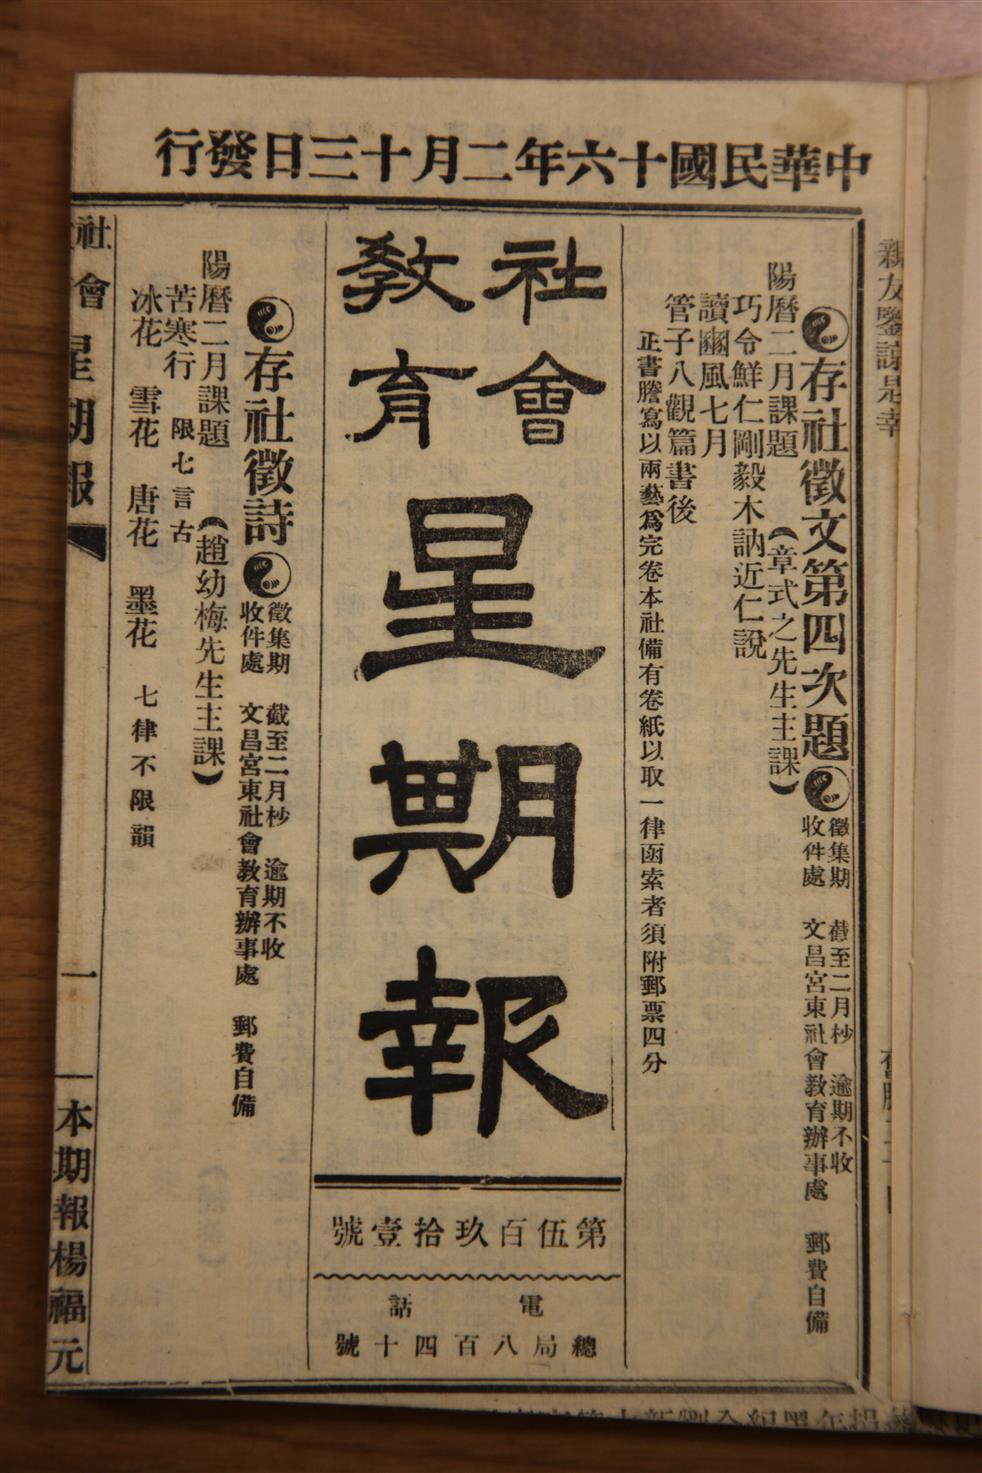 中華民國十六年二月十三日發行
親友鑒諒是幸
存社徵文第四次題
徵集期 截至二月杪 逾期不收
收件處 文昌宮東社會教育辦事處 郵費自備
陽曆二月課題 (章式之先生主課)
巧令鮮仁剛毅木訥近仁說
讀豳風七月
管子八觀篇書後
正書謄寫以兩藝爲完卷本社備有卷紙以取一律函索者須附郵票四分
社會
教育
星期報
第伍百玖拾壹號
電話
總局八百四十號
存社徵詩
徵集期 截至二月杪 逾期不收
收件處 文昌宮東社會教育辦事處 郵費自備
陽曆二月課題 (趙幼梅先生主課)
苦寒行 限七言古
冰花 雪花 唐花 墨花 七律不限韻
社會星期報 一 本期報楊福元